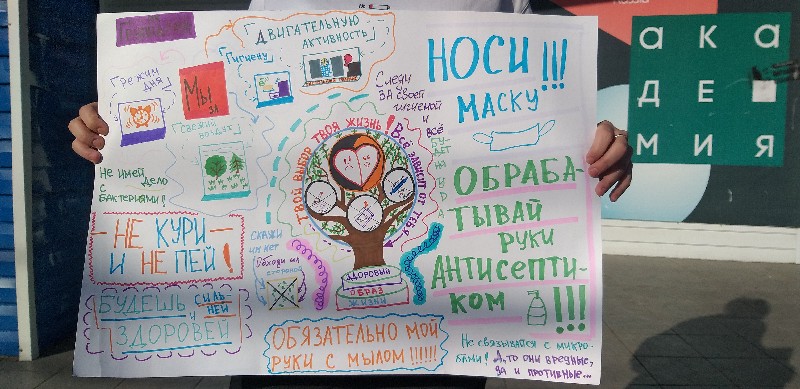 Мы
за
„Режим
дня"
„Гигиену"
„Двигательную
активность"
„Свежий воздух"
Не имей дело
с
бактериями!
НЕ КУРИ
И НЕ ПЕЙ!
БУДЕШЬ СИЛЬ-
НЕЙ
И
ЗДОРОВЕЙ
ТВОЙ ВЫБОР ТВОЯ ЖИЗНЬ!
Всё ЗАВИСИТ ОТ ТЕБЯ
Следи
за своей
гигиеной
и
всё
бу-
дет
СКАЖИ
им нет
ЗДОРОВЫЙ
ОБРАЗ
ЖИЗНИ
ОБЯЗАТЕЛЬНО МОЙ
РУКИ С МЫЛОМ!!!!!!
НОСИ!!!
МАСКУ
ОБРАБА-
ТЫВАЙ
РУКИ
АНТИСЕПТИ-
КОМ !!!
Не связывайся с микро-
бами! А то они вредные,
да и противные...
ака
де■
мия